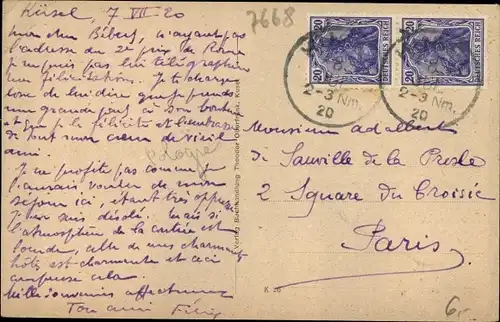 Kösel, 7 VII 20
Mon cher Bibert, n'ayant pas
l'adresse du 2e prix de Rome
je ne puis pas lui télégraphier
mes félicitations. Je te charge
donc de lui dire que je prends
une grande part à son bonheur
et que je le félicite et l'embrasse
de tout mon cœur de vieil
ami.
Je ne profite pas comme je
l'aurais voulu de mon
séjour ici, étant très
Mais si
l'atmosphère de la
lourde, celle de mes charmants
hôtes est charmante et ceci
compense cela.
Mille souvenirs affectueux
Ton ami
Pologne
7668
20 DEUTSCHES REICH 20
20 DEUTSCHES REICH 20
2-3 Nm.
20
2-3 Nm.
20
Verlag Buchhandlung Theodor
K 26
Monsieur Adalbert
de Sauville de la Presle
2 Square du Croisic
Paris
6.-